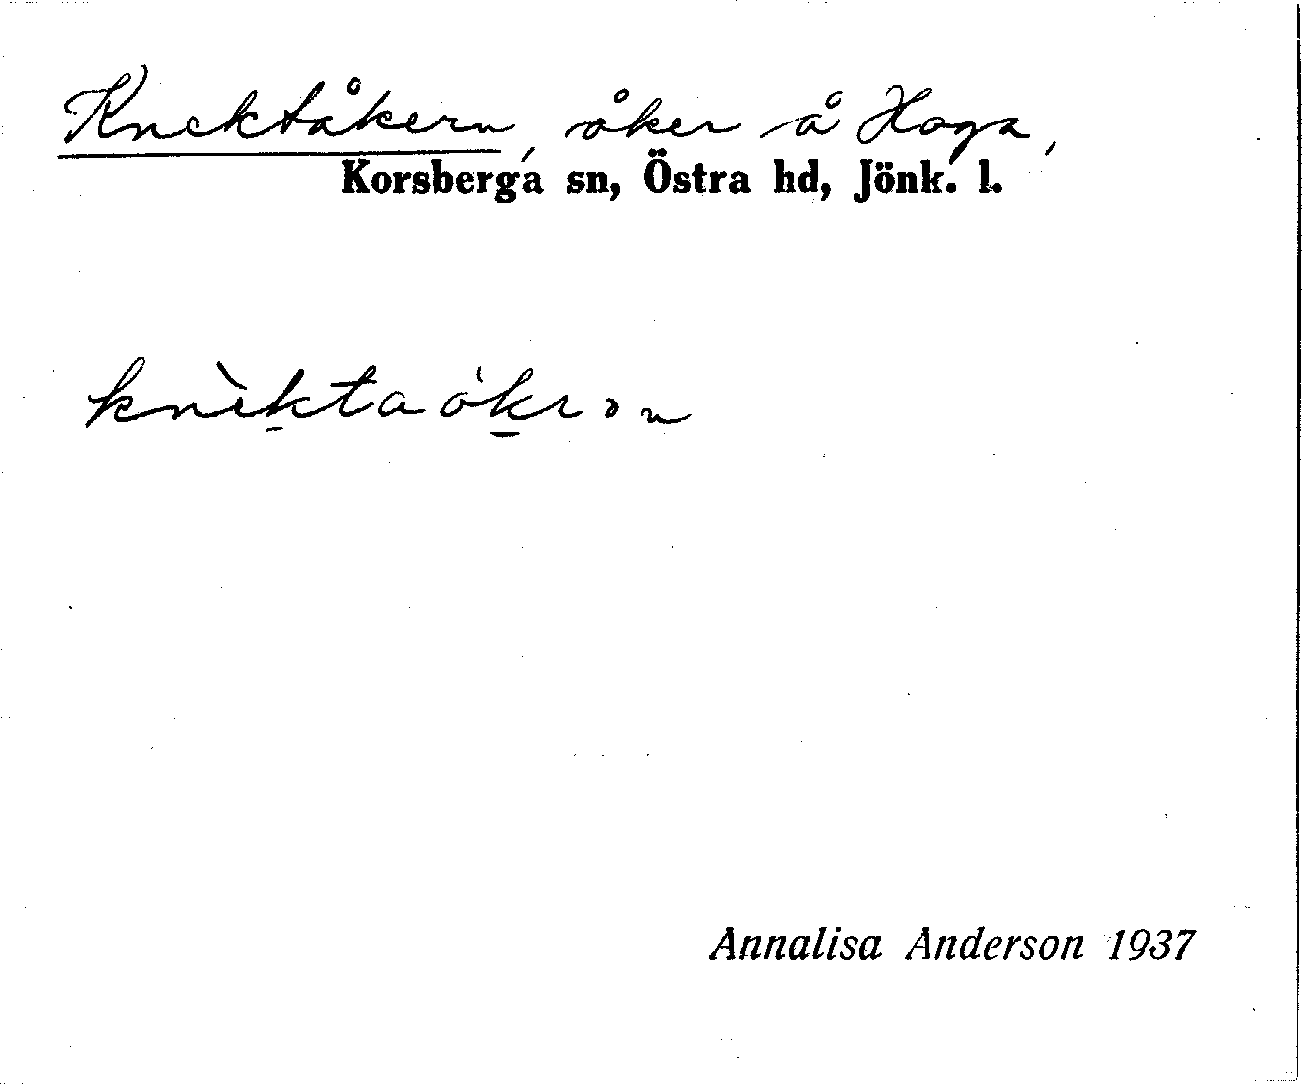 Knektåkern, åker å Haga,
Korsberga sn, Östra hd, Jönk. l.
knèktaòkrɔn
Annalisa Anderson 1937